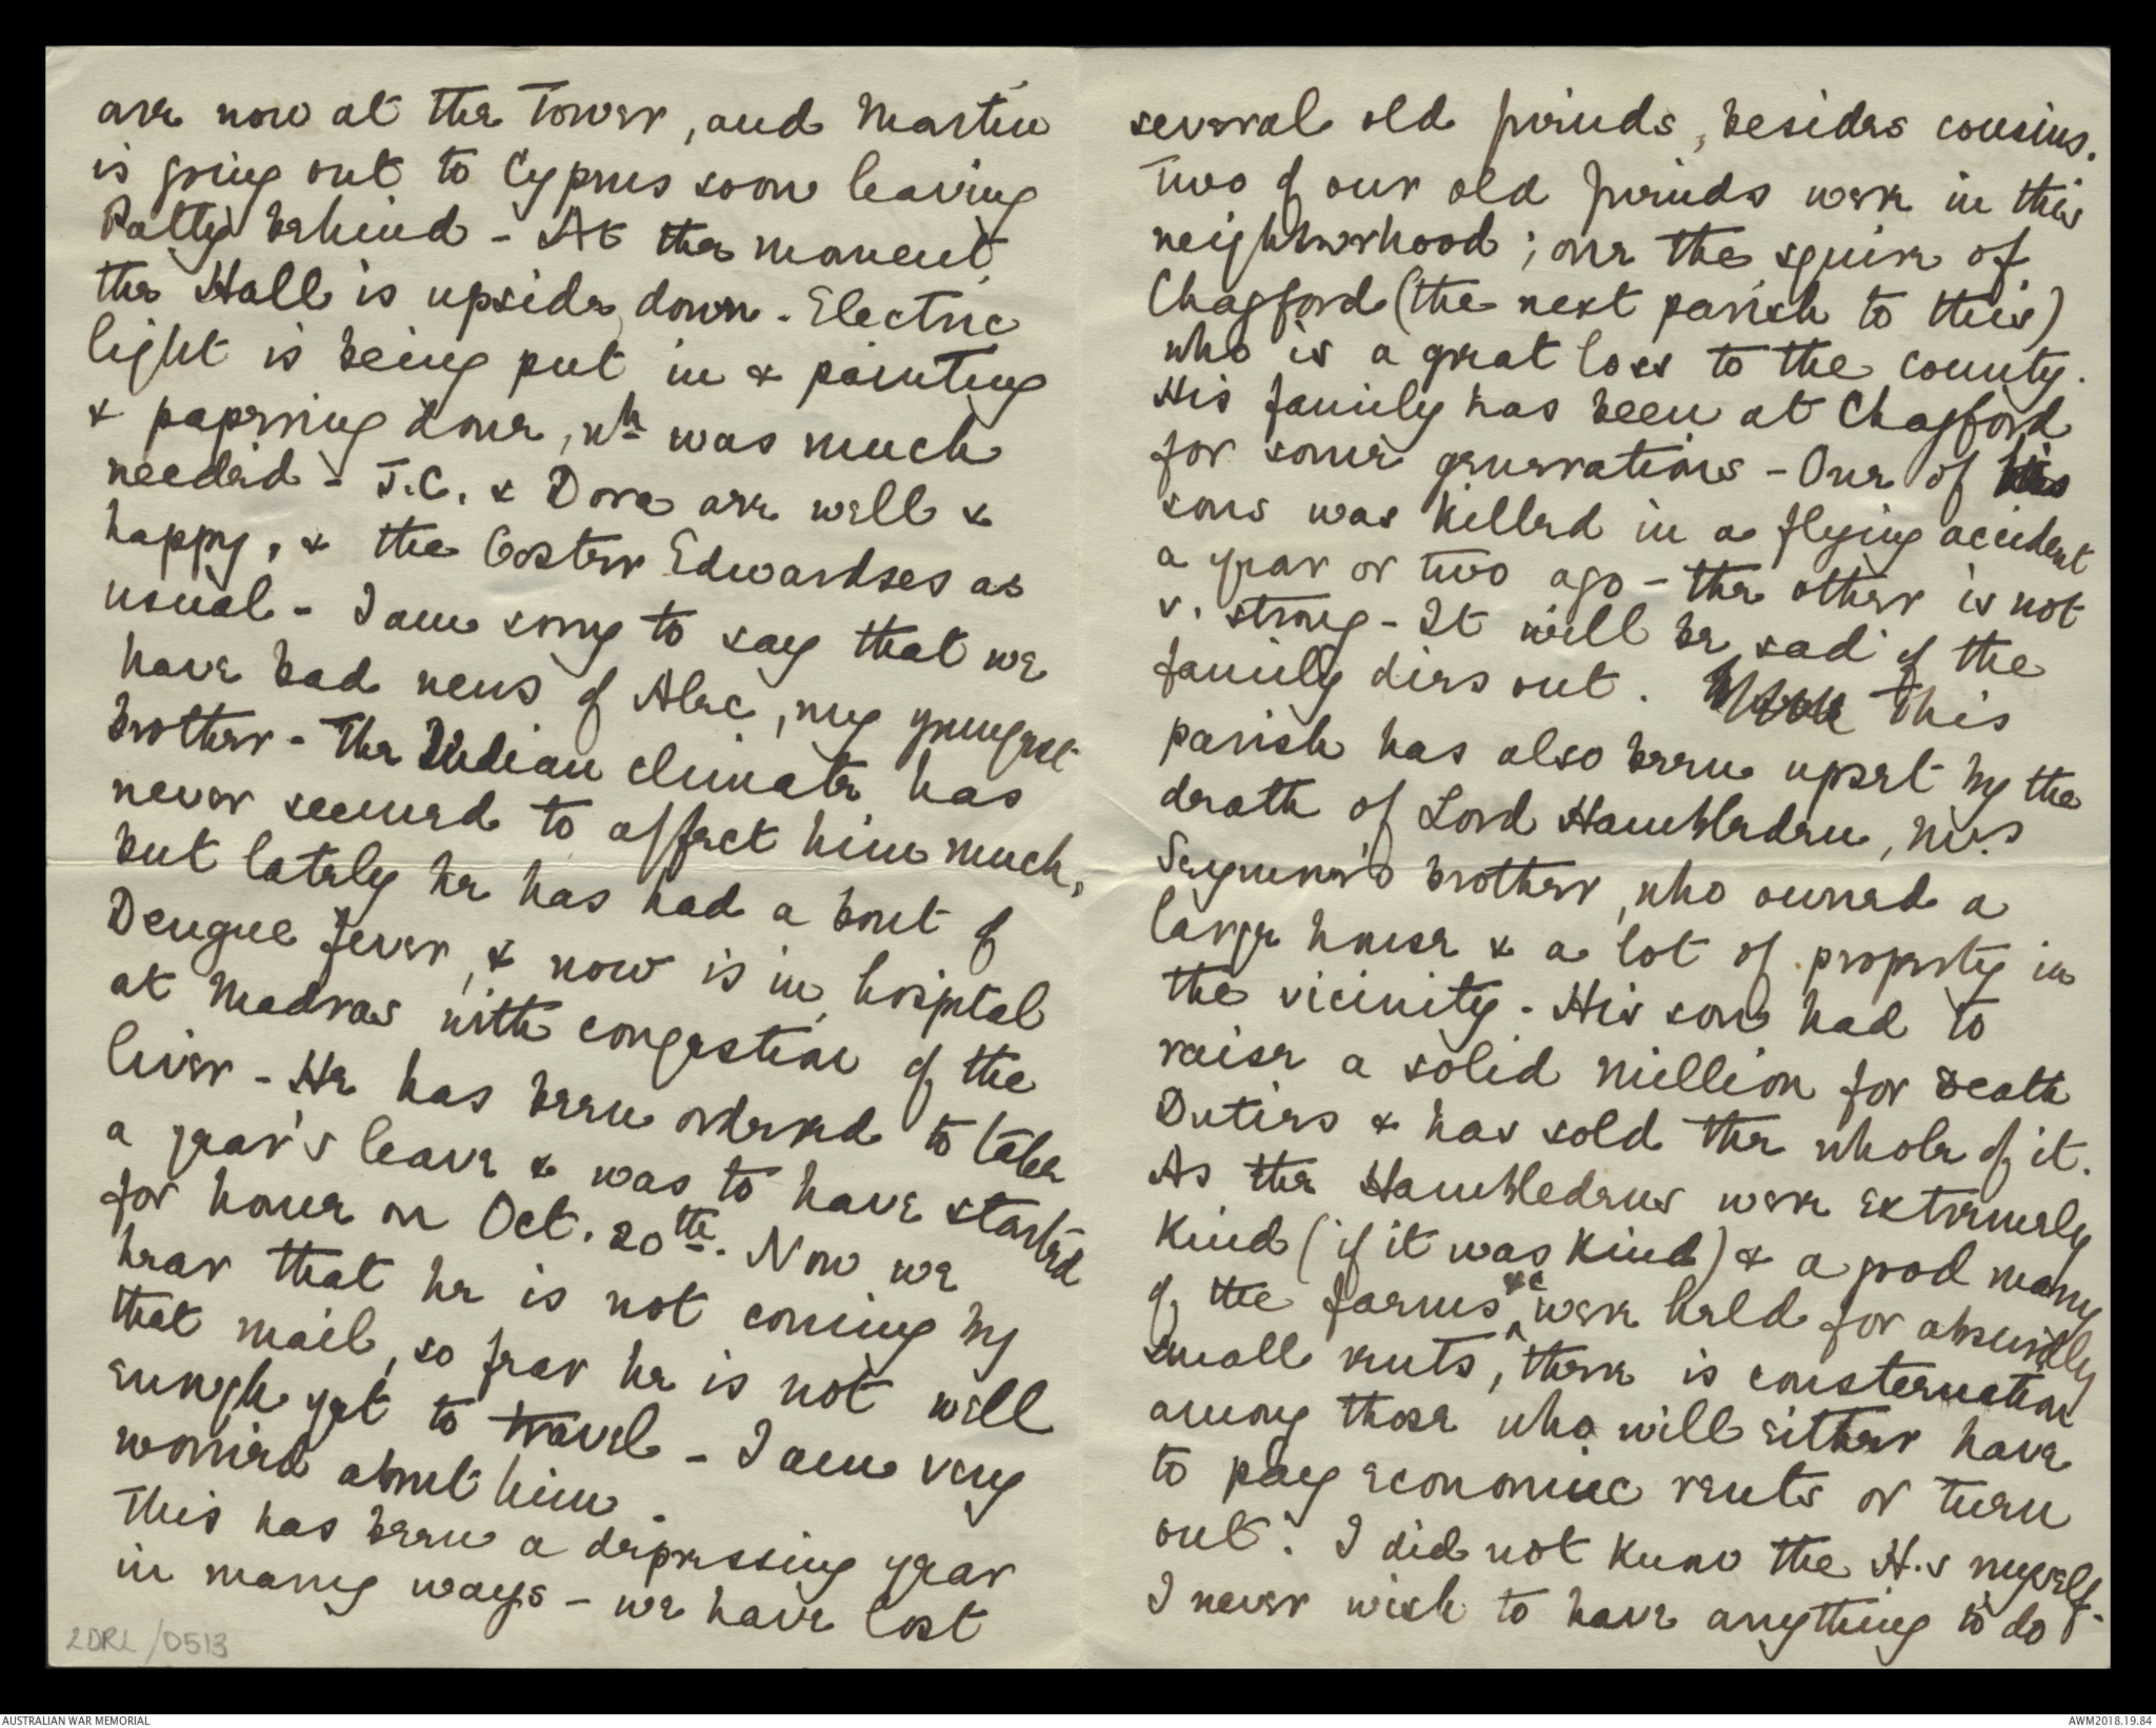 are now at the Tower, and Martin
is going out to Cyprus soon leaving
Patty behind - At the moment
the Hall is upside down. Electric
light is being put in & painting
& papering done, wh was much
needed - J.C. & Dora are well &
happy, & the Coster Edwardses as
usual - I am sorry to say that we
have bad news of Alec, my youngest
brother - The Indian climate has
never seemed to affect him much,
but lately he has had a bout of
Dengue fever, & now is in hospital
at Madras with congestion of the
liver - He has been ordered to take
a year's leave & was to have started
for home on Oct. 20th. Now we
hear that he is not coming by
that mail, so fear he is not well
enough yet to travel - I am very
worried about him.
This has been a depressing year
in many ways - we have lost
2DRL/0513
several old friends, besides cousins.
Two of our old friends were in this
neighbourhood; one the squire of
Chagford (the next parish to this)
who is a great loss to the county.
His family has been at Chagford
for some generations - One of his
sons was killed in a flying accident
a year or two ago - the other is not
v. strong - It will be sad if the
family dies out. This
parish has also been upset by the
death of Lord Hambleden, Mrs
Seymour's brother, who owned a
large house & a lot of property in
the vicinity - His son had to
raise a solid million for Death
Duties & has sold the whole of it.
As the Hambledens were extremely
kind (if it was kind) & a good many
of the farms &c were held for absurdly
small rents, there is consternation
among those who will either have
to pay economic rents or turn
out. I did not know the H.s myself.
I never wish to have anything to do
AUSTRALIAN WAR MEMORIAL
AWM2018.19.84